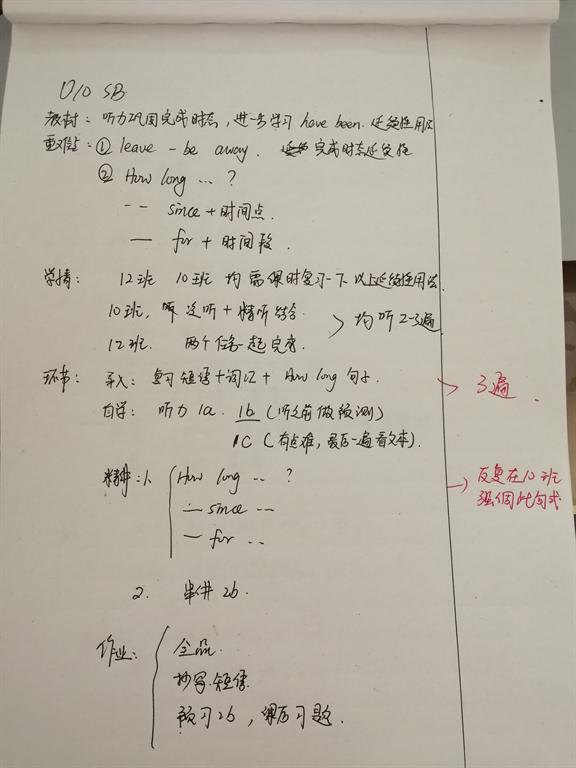 U10 SB
教材：听力巩固完成时态，进一步学习 have been. 延续性用法
重难点：① leave - be away. 完成时态延续性
② How long ... ?
-- since + 时间点.
— for + 时间段.
学情： 12班 10班 均需课时复习一下以上延续性用法.
10班, 泛听 + 精听结合.
12班. 两个任务一起完成.
均听2-3遍
环节： 导入：复习短语+词汇+ How long 句子.
3遍.
自学： 听力 1a. 1b (听之前做预测)
1C (有点难，最后一遍看文本).
精讲：1. How long .. ?
— since --
— for ..
反复在10班
强调此句式
2. 串讲 2b.
作业： 全品.
抄写.短语.
预习2b，课后习题.